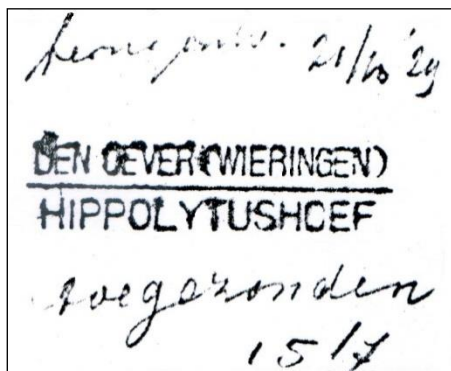 21/10 '29
DEN OEVER (WIERINGEN)
HIPPOLYTUSHOEF
toegezonden
15/7